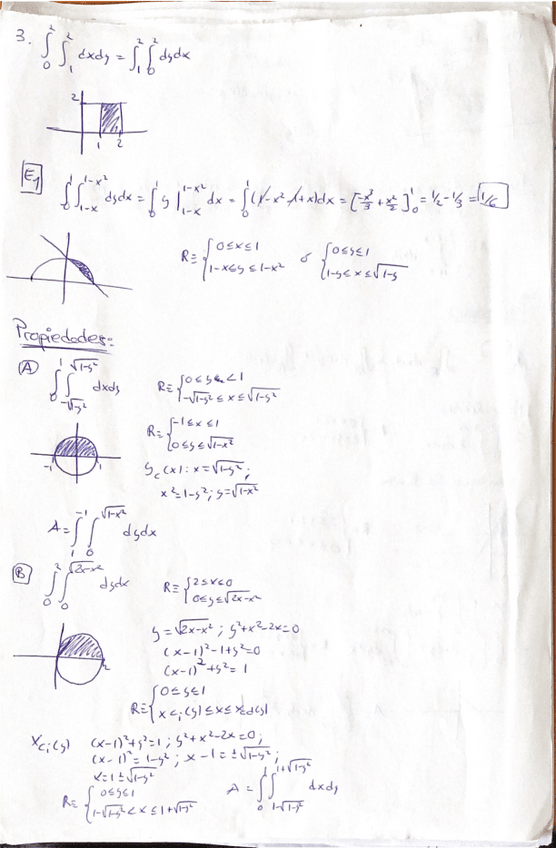 3. ∫₀² ∫₁² dxdy = ∫₁² ∫₀² dydx
2
1 2
E₁ ∫₀¹ ∫₁₋ₓ^(1-x²) dydx = ∫₀¹ y |₁₋ₓ^(1-x²) dx = ∫₀¹ (1-x²-1+x)dx = [-x³/3 + x²/2]₀¹ = 1/2 - 1/3 = 1/6
R≡ { 0≤x≤1 ó { 0≤y≤1
1-x≤y≤1-x² 1-y≤x≤√(1-y)
Propiedades:
A ∫₀¹ ∫_(-√(1-y²))^(√(1-y²)) dxdy R≡ { 0≤y≤1
-√(1-y²)≤x≤√(1-y²)
R≡ { -1≤x≤1
0≤y≤√(1-x²)
-1 1
y_c(x): x=√(1-y²);
x²=1-y²; y=√(1-x²)
A=∫₁⁻¹ ∫₀^(√(1-x²)) dydx
B ∫₀² ∫₀^(√(2x-x²)) dydx R≡ { 2≤x≤0
0≤y≤√(2x-x²)
y=√(2x-x²); y²+x²-2x=0
(x-1)²-1+y²=0
(x-1)²+y²=1
2
R≡ { 0≤y≤1
x_ci(y)≤x≤x_cd(y)
x_ci(y) (x-1)²+y²=1; y²+x²-2x=0;
(x-1)²=1-y²; x-1=±√(1-y²);
x=1±√(1-y²)
R≡ { 0≤y≤1 A=∫₀¹ ∫_(1-√(1-y²))^(1+√(1-y²)) dxdy
1-√(1-y²)<x≤1+√(1-y²)